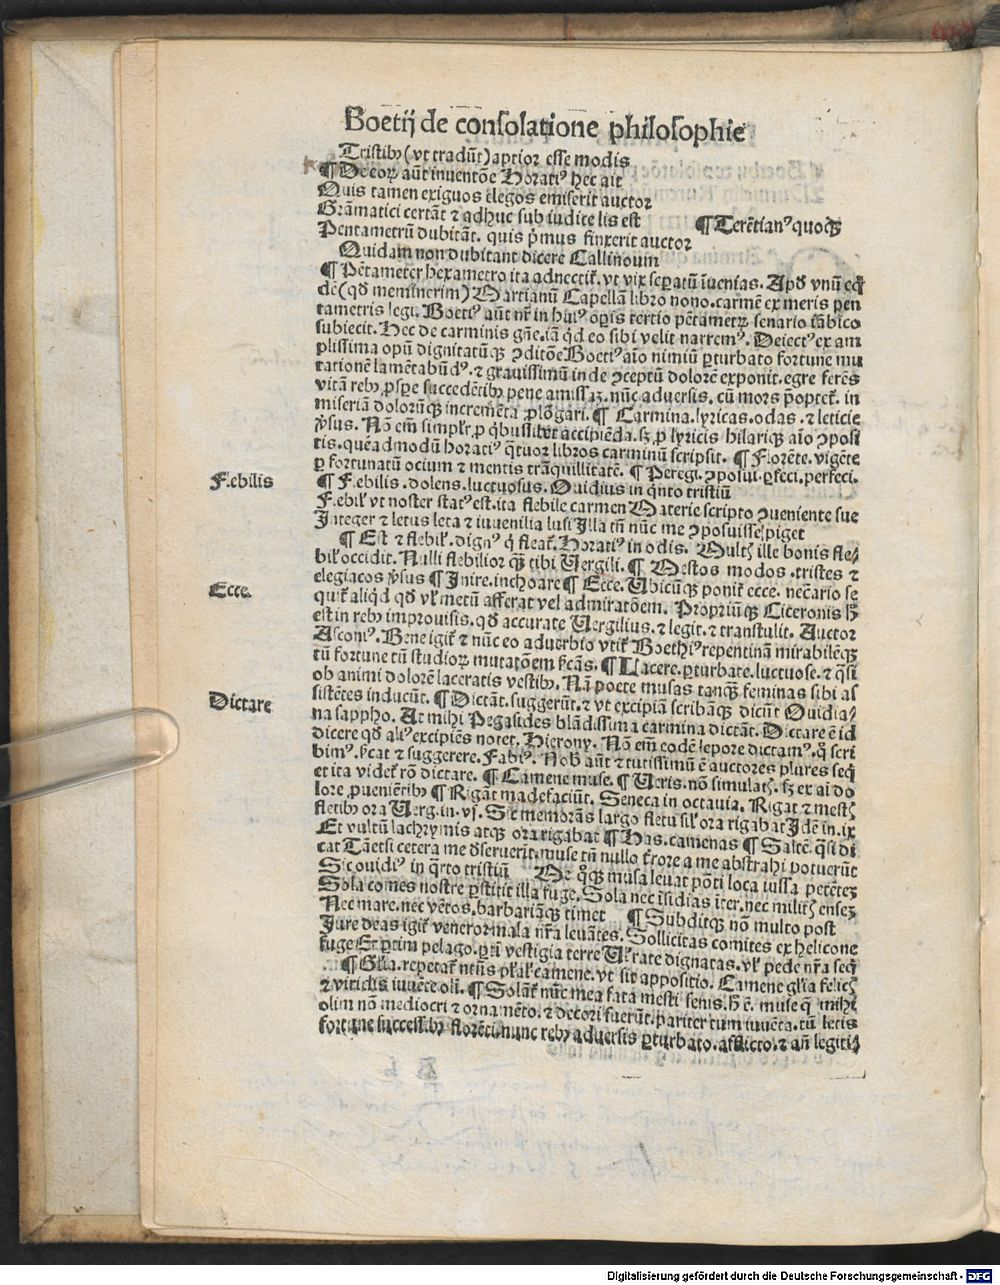 Boetij de consolatione philosophie
Tristibꝫ (vt tradūt) aptior esse modis
¶ De eoꝝ aūt inuentōe Horatiꝰ hec ait
Quis tamen exiguos elegos emiserit auctor
Grāmatici certāt ⁊ adhuc sub iudice lis est ¶ Terētianꝰ quoqꝫ
Pentametrū dubitāt. quis pͥmus finxerit auctor
Quidam non dubitant dicere Callinoum
¶ Pētameter hexametro ita adnectiť. vt vix seꝑatū īuenias. Apđ vnū eqͥ
dē (qđ meminerim) Martianū Capellā libro nono. carmē ex meris pen
tametris legi. Boetiꝰ aūt nr̄ in huiꝰ oꝑis tertio pētametꝝ senario iābico
subiecit. Hec de carminis gn̄e. iā qͥd eo sibi velit narremꝰ. Deiectꝰ ex am
plissima opū dignitatūqꝫ ↄditōe Boetiꝰ aīo nimiū ꝑturbato fortune mu
tationē lamētabūdꝰ. ⁊ grauissimū inde ↄceptū dolorē exponit. egre ferēs
vitā rebꝫ ꝓsꝑe succedētibꝫ pene amissaꝫ. nūc aduersis. cū mors p̄opteť. in
miseriā dolorūqꝫ incremēta ꝓlōgari. ¶ Carmina. lyricas. odas. ⁊ leticie
v̓sus. Nā em̄ simplr̄ ꝓ qͥbuslibet accipiēda. sꝫ ꝓ lyricis hilariqꝫ aīo ↄposi
tis. queadmodū horatiꝰ qͣtuor libros carminū scripsit. ¶ Florēte. vigēte
ꝑ fortunatū ocium ⁊ mentis trāquillitatē. ¶ Peregi. ↄposui. ꝑfeci. perfeci.
Flebilis ¶ Flebilis. dolens. luctuosus. Ouidius in qͥnto tristiū
Flebil̓ vt noster statꝰ est. ita flebile carmen Materie scripto ↄueniente sue
Integer ⁊ letus leta ⁊ iuuenilia lusi Illa tn̄ nūc me ↄposuisse piget
¶ Est ⁊ flebil̓. dignꝰ qͥ fleať. Horatiꝰ in odis. Multꝭ ille bonis fle⸗
bil̓ occidit. Nulli flebilior qͣꝫ tibi Vergili. ¶ Mestos modos. tristes ⁊
elegiacos v̓sus ¶ Inire. inchoare ¶ Ecce. Vbicūqꝫ poniť ecce. necārio se
Ecce. quiť aliqͥd qđ vl̓ metū afferat vel admiratōem. Propriūqꝫ Ciceronis hͦ
est in rebꝫ improuisis. qđ accurate Vergilius. ⁊ legit. ⁊ transtulit. Auctor
Asconiꝰ. Bene igiť ⁊ nūc eo aduerbio vtiť Boethiꝰ repentinā mirabilēqꝫ
tū fortune tū studioꝝ mutatōem p̄cās. ¶ Lacere. ꝑturbate. luctuose. ⁊ qͣsi
ob animi dolorē laceratis vestibꝫ. Nā poete musas tanqͣꝫ feminas sibi as
Dictare sistētes inducūt. ¶ Dictāt. suggerūt. ⁊ vt excipiā scribāqꝫ dicūt Ouidia⸗
na sappho. At mihi Pegasides blādissima carmina dictāt. Dictare ē id
dicere qđ aliꝰ excipiēs notet. Hierony. Nō em̄ eodē lepore dictamꝰ. qͦ scri
bimꝰ. p̄cat ⁊ suggerere. Fabiꝰ. Nob̓ aūt ⁊ tutissimū ē auctores plures seqͥ
et ita videť rō dictare. ¶ Camene muse. ¶ Veris. nō simulatꝭ. sꝫ ex aī do
lore ꝓueniētibꝫ ¶ Rigāt madefaciūt. Seneca in octauia. Rigat ⁊ mestꝭ
fletibꝫ ora Verg. in. vj. Sic memorās largo fletu sil̓ ora rigabat Idē in. ix
Et vultū lachrymis atqꝫ ora rigabat ¶ Has. camenas ¶ Saltē. qͣsi di
cat Tāetsi cetera me đseruerūt. muse tn̄ nullo ťrore a me abstrahi potuerūt
Sic ouidiꝰ in qͣrto tristiū Me qͦqꝫ musa leuat pōti loca iussa petētez
Sola comes nostre ꝑstitit illa fuge. Sola nec īsidias īter. nec militꝭ ensez
Nec mare. nec vētos. barbariāqꝫ timet ¶ Subditqꝫ nō multo post
Iure deas igiť veneror mala nr̄a leuātes. Sollicitas comites ex helicone
fuge Et ꝑtim pelago. ꝑtī vestigia terre Vl̓ rate dignatas. vl̓ pede nr̄a seqͥ
¶ Gl̄ia. repetať ntīus pl̓al̓ camene. vt sit appositio. Camene gl̄ia felicꝭ
⁊ viridis iuuēte olī. ¶ Solāť nūc mea fata mesti senis. h̄ ē. muse qͥ mihi
olim nō mediocri ⁊ ornamēto. ⁊ decori fuerūt. pariter tum iuuēta. tū letis
fortune successibꝫ florēti. nunc rebꝫ aduersis ꝑturbato. afflicto. ⁊ an̄ legiti⸗
Digitalisierung gefördert durch die Deutsche Forschungsgemeinschaft - DFG